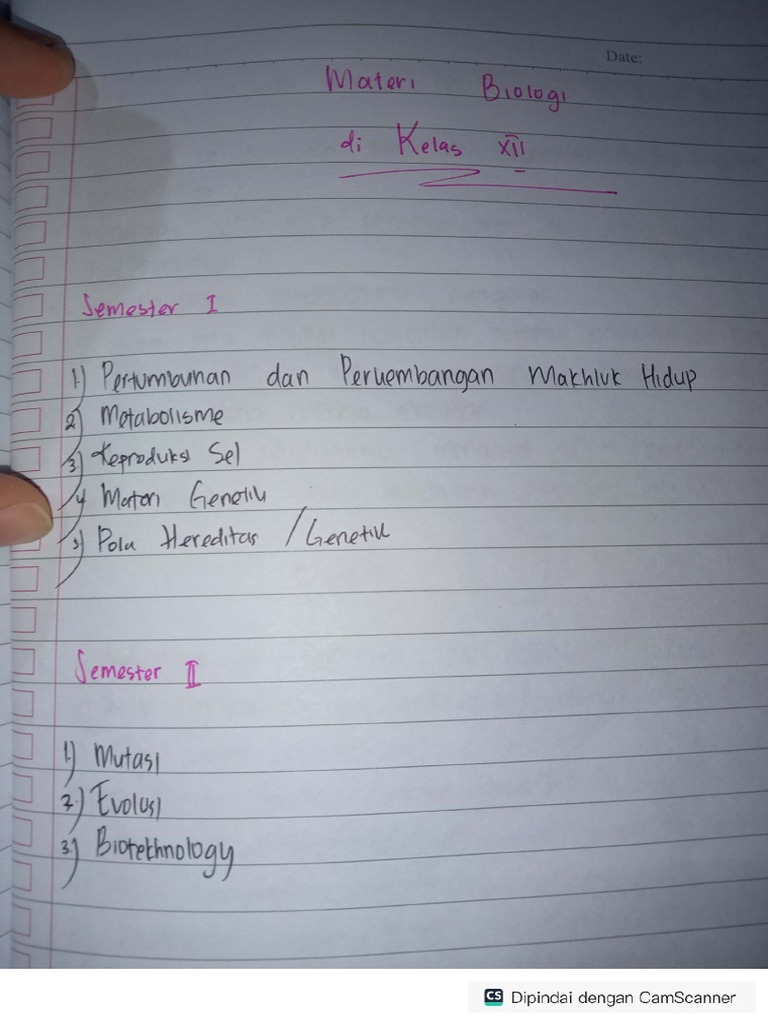 Date:
Materi Biologi
di Kelas XII
Semester I
1.) Pertumbuhan dan Perkembangan Makhluk Hidup
2) Metabolisme
3.) Reproduksi Sel
4) Materi Genetik
5) Pola Hereditas / Genetik
Semester II
1.) Mutasi
2.) Evolusi
3.) Biotekhnology
CS Dipindai dengan CamScanner